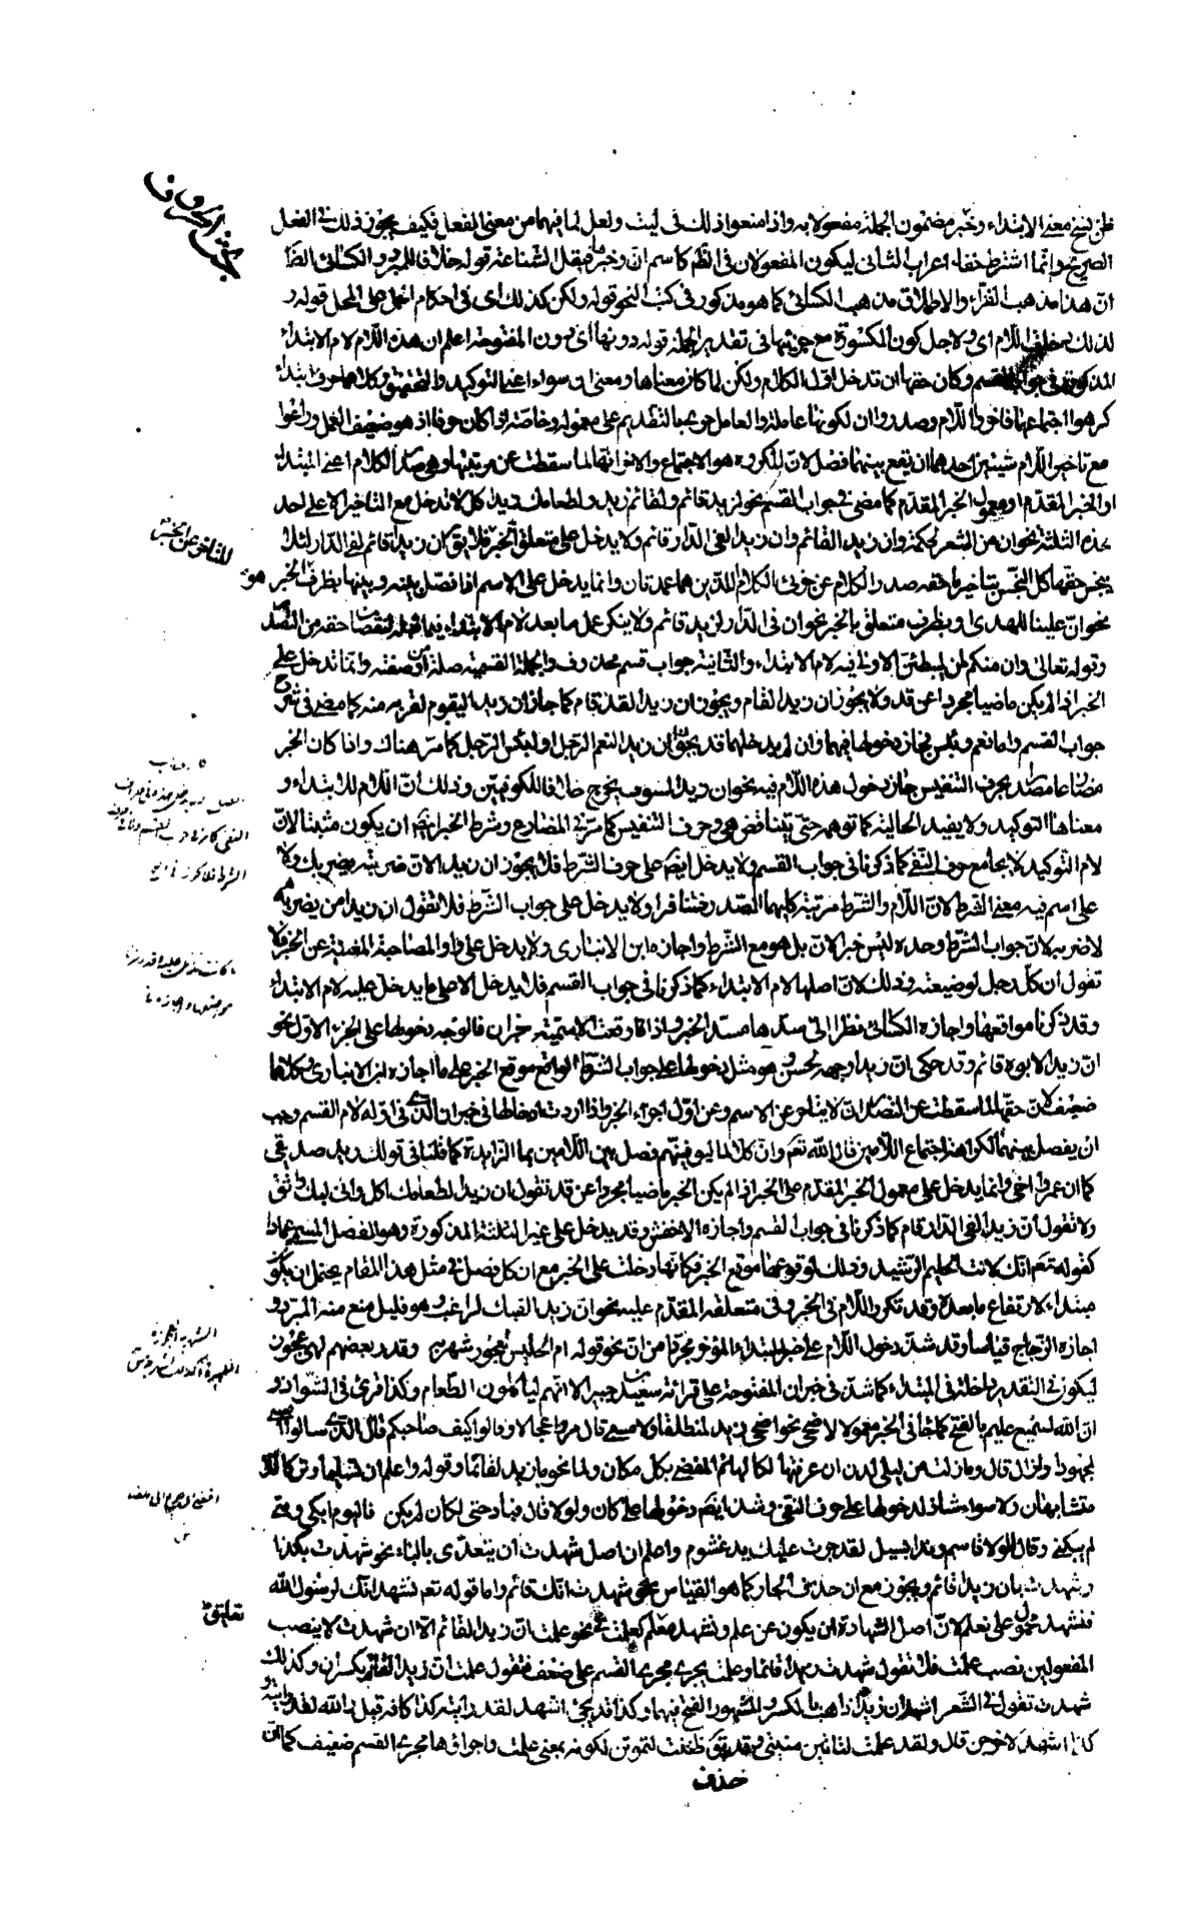 بحث الحروف
ظن نسخ معنى الابتداء وخبر مضمون الجملة مفعولا به واذا منعوا ذلك فى ليت ولعل لما فيهما من معنى الفعل فكيف يجوز ذلك فى الفعل
الصريح وانما اشترط خفاء اعراب الثانى ليكون المفعولان فى الظاهر كاسم ان وخبرها فيقل الشناعة قوله خلافا للمبرد والكسائى
ان هذا مذهب الفراء والاطلاق مذهب الكسائى كما هو مذكور فى كتب النحو قوله ولكن كذلك اى فى احكام الحمل على المحل قوله و
لذلك دخلت اللام اى ولاجل كون المكسورة مع جزئيها فى تقدير الجملة قوله دونها اى دون المفتوحة اعلم ان هذه اللام لام الابتداء
المذكورة فى جواب القسم وكان حقها ان تدخل اول الكلام ولكن لما كان معناها ومعنى ان سواء اعنى التوكيد والتحقيق وكلاهما حرف ابتداء
كرهوا اجتماعهما فاخروا اللام وصدروا ان لكونها عاملة والعامل حرى بالتقديم على معموله وخاصة اذا كان حرفا اذ هو ضعيف العمل وراعوا
مع تاخير اللام شيئين احدهما ان يقع بينهما فصل لان المكروه هو الاجتماع والاخر انها لما سقطت عن مرتبتها وهى صدر الكلام اعنى المبتدأ
او الخبر المقدم او معمول الخبر المقدم كما مضى فى جواب القسم نحو لزيد قائم ولقائم زيد ولطعامك زيد اكل لا تدخل مع التاخير الا على احد
هذه الثلثة نحو ان من الشعر لحكمة وان زيدا لقائم وان زيدا لفى الدار قائم ولا يدخل على متعلق الخبر فلا يق ان زيدا قائم لفى الدار لئلا
يبخس حقها كل البخس بتاخير ما حقه صدر الكلام عن جزئى الكلام اللذين هما عمدتان وانما يدخل على الاسم اذا فصل بينه وبينها بظرف هو الخبر
نحو ان علينا للهدى وبظرف متعلق بالخبر نحو ان فى الدار لزيد قائم ولا ينكر عمل ما بعد لام الابتداء فيما قبله لنقصان حقه من التصدر
وقوله تعالى وان منكم لمن ليبطئن الاولى فيه لام الابتداء والثانية جواب قسم محذوف والجملة القسمية صلة من او صفته وانما تدخل على
الخبر اذا لم يكن ماضيا مجردا عن قد ولا يجوز ان زيدا لقام ويجوز ان زيدا لقد قام كما جاز ان زيدا ليقوم لقربه منه كما مضى فى شرح
جواب القسم واما نعم وبئس فجاز دخولها فيهما وان لم يدخلهما قد نحو ان زيدا لنعم الرجل او لبئس الرجل كما مر هناك واذا كان الخبر
مضارعا مصدرا بحرف التنفيس جاز دخول هذه اللام فيه نحو ان زيدا لسوف يخرج خلافا للكوفيين وذلك ان اللام للابتداء و
معناها التوكيد ولا يفيد الحالية كما توهم حتى يتناقض هى وحرف التنفيس كما مر فى المضارع وشرط الخبر ايضا ان يكون مثبتا لان
لام التوكيد لا يجامع حرف النفى كما ذكرنا فى جواب القسم ولا يدخل ايضا على حرف الشرط فلا يجوز ان زيدا لان ضربته يضربك ولا
على اسم فيه معنى الشرط لان اللام والشرط مرتبة كليهما الصدر فتنافرا ولا يدخل على جواب الشرط فلا تقول ان زيدا من يضربه
لاضربه لان جواب الشرط وحده ليس خبر ان بل هو مع الشرط واجازه ابن الانبارى ولا يدخل على واو المصاحبة المغنية عن الخبر فلا
تقول ان كل رجل لوضيعته وذلك لان اصلها لام الابتداء كما ذكرنا فى جواب القسم فلا يدخل الا على ما يدخل عليه لام الابتداء
وقد ذكرنا مواقعها واجازه الكسائى نظرا الى سدها مسد الخبر واذا وقعت الاسمية خبر ان فالوجه دخولها على الجزء الاول نحو
ان زيدا لابوه قائم وقد حكى ان زيدا وجهه لحسن وهو مثل دخولها على جواب الشرط الواقع موقع الخبر على ما اجازه ابن الانبارى وكلاهما
ضعيف لان حقها لما سقطت عن التصدر ان لا يتاخر عن الاسم وعن اول اجزاء الخبر واذا اردت ادخالها فى خبر ان الذى فى اوله لام القسم وجب
ان يفصل بينهما لكراهة اجتماع اللامين قال الله تعم وان كلا لما ليوفينهم فصل بين اللامين بما الزايدة كما قلنا فى قولك زيد صديقى
كما ان عمرا اخى وانما يدخل على معمول الخبر المقدم على الخبر اذا لم يكن الخبر ماضيا مجردا عن قد تقول ان زيدا لطعامك اكل وانى لبك واثق
ولا تقول ان زيدا لفى الدار قام كما ذكرنا فى جواب القسم واجازه الاخفش وقد يدخل على غير الثلثة المذكورة وهو الفصل المسمى عمادا
كقوله تعم انك لانت الحليم الرشيد وذلك لوقوعها موقع الخبر فكانها دخلت على الخبر مع ان كل فصل فى مثل هذا المقام يحتمل ان يكون
مبتدأ لارتفاع ما بعده وقد تكرر اللام فى الخبر وفى متعلقه المقدم عليه نحو ان زيدا لفيك لراغب وهو قليل منع منه المبرد و
اجازه الزجاج قياسا وقد شذ دخول اللام على خبر المبتدأ المؤخر مجردا من ان نحو قوله ام الحليس لعجوز شهربه وقدر بعضهم لهى عجوز
ليكون فى التقدير داخلة فى المبتدأ كما شذ فى خبر ان المفتوحة على قراءة سعيد بن جبير الا انهم لياكلون الطعام وكذا قرئ فى الشواذ و
ان الله لسميع عليم بالفتح كما جاء فى الخبر معمولا لاضحى نحو اضحى زيد لمنطلقا ولامسى قال مروا عجالا وقالوا كيف صاحبكم قال الذى سالوا امسى
لمجهودا ولزال قال وما زلت من ليلى لدن ان عرفتها لكالهائم المقصى بكل مكان ولما نحو ما زيد لقائما وقوله واعلم ان تسليما وتركا للا
متشابهان ولا سواء شاذ لدخولها على حرف النفى وشذ ايضا دخولها على كان ولولا قال فباد حتى لكان لم يكن فاليوم ابكى ومتى
لم يبكنى وقال للولا قاسم وندا بسيل لقد جرت عليك يد غشوم واعلم ان اصل شهدت ان يتعدى بالباء نحو شهدت بكذا
وشهدت بان زيدا قائم ويجوز مع ان حذف الجار كما هو القياس نحو شهدت انك قائم واما قوله تعم نشهد انك لرسول الله
فنشهد محمول على نعلم لان اصل الشهادة ان يكون عن علم ونشهد معلق كعلمت فى نحو علمت ان زيدا لقائم الا ان شهدت لا ينصب
المفعولين نصب علمت فلا تقول شهدت زيدا قائما وعلمت يجرى مجرى القسم على ضعف فتقول علمت ان زيدا لقائم بكسر ان وكذلك
شهدت تقول فى الشعر اشهد ان زيدا ذاهب بالكسر والمشهور الفتح فيها وكذا قد يجئ اشهد لقد رايته كذا كما قيل والله لقد رايته
كذا اشهد لاخرجن قال ولقد علمت لتاتين منيتى وقد يق ظننت لتموتن لكونه بمعنى علمت واجراؤها مجرى القسم ضعيف كما ان
حذف